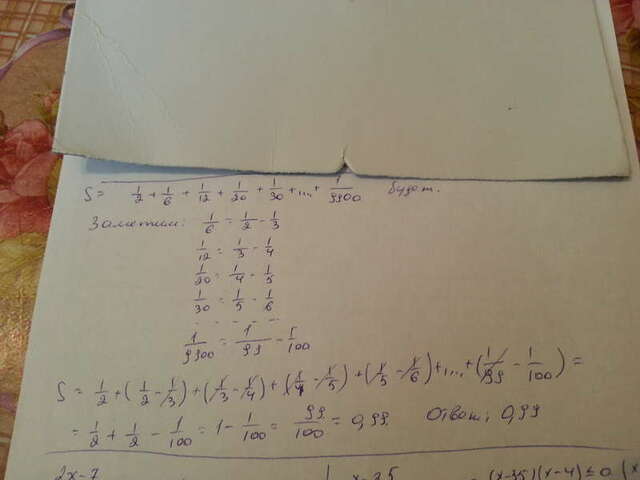 S = 1/2 + 1/6 + 1/12 + 1/20 + 1/30 + ... + 1/9900 будет.
Заметим: 1/6 = 1/2 - 1/3
1/12 = 1/3 - 1/4
1/20 = 1/4 - 1/5
1/30 = 1/5 - 1/6
- - - - -
1/9900 = 1/99 - 1/100
S = 1/2 + (1/2 - 1/3) + (1/3 - 1/4) + (1/4 - 1/5) + (1/5 - 1/6) + ... + (1/99 - 1/100) =
= 1/2 + 1/2 - 1/100 = 1 - 1/100 = 99/100 = 0,99. Ответ: 0,99
2x-7 x-35 (x-35)(x-4) ≤ 0